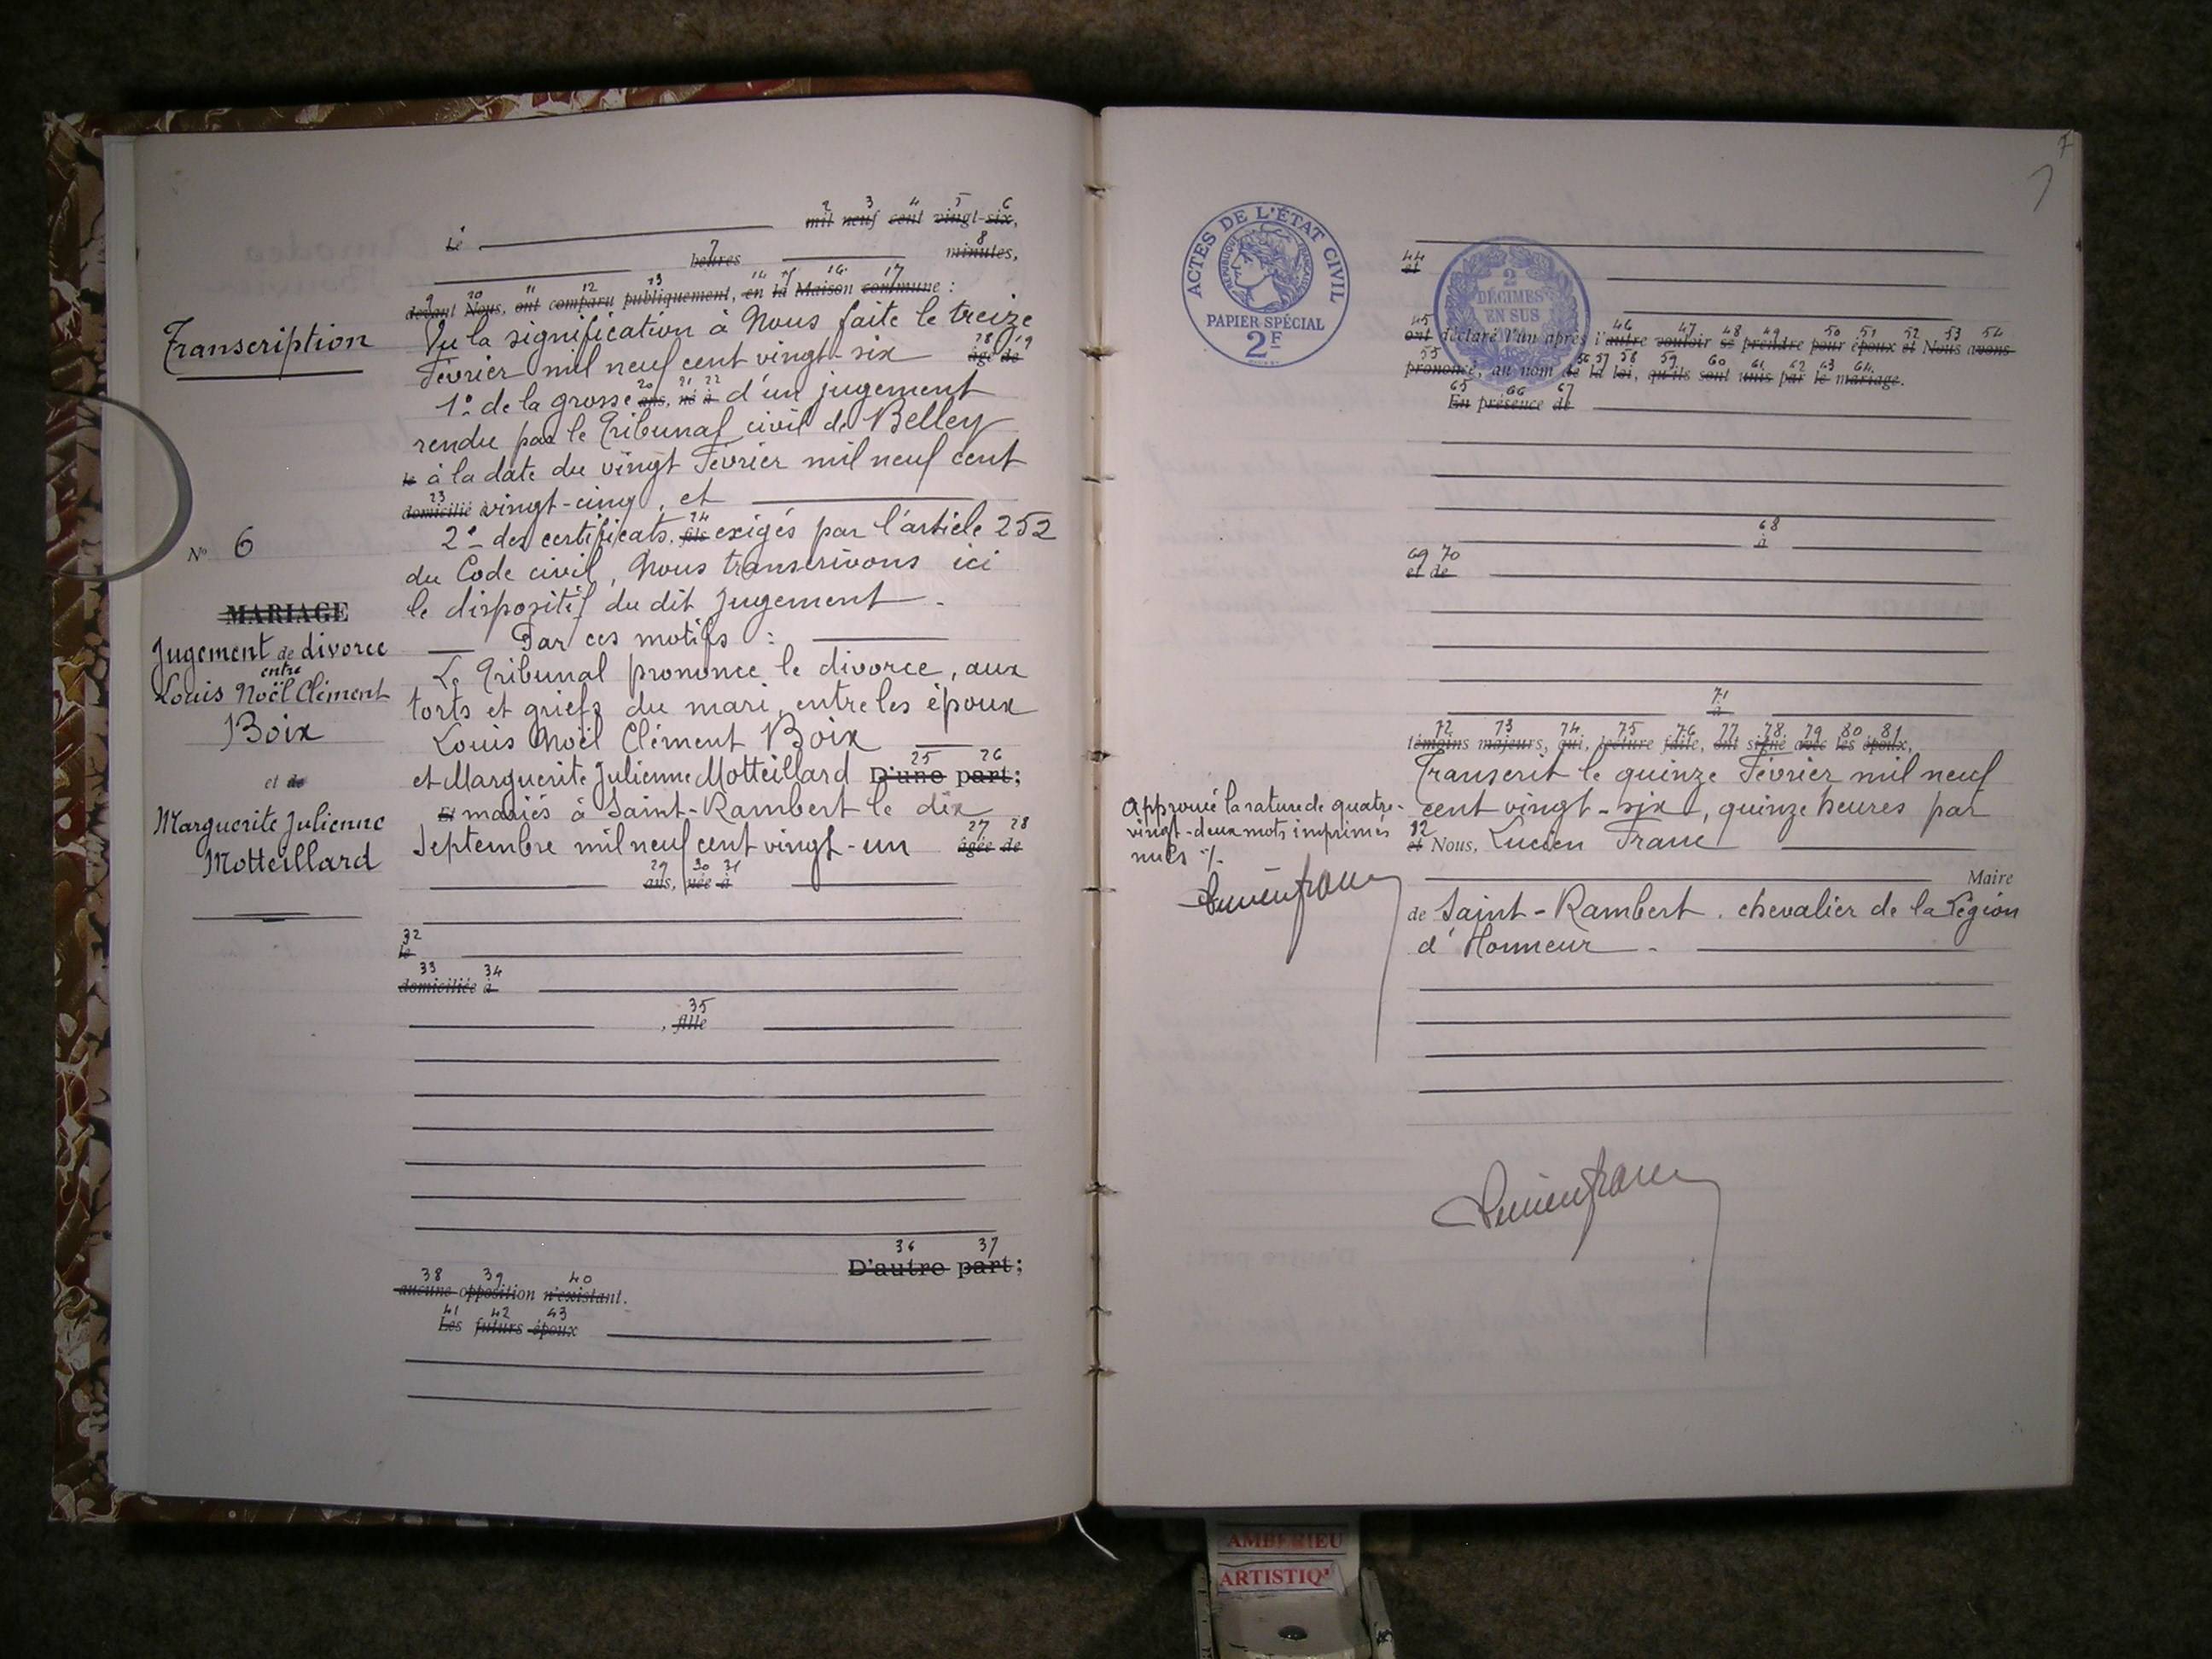 Transcription
N° 6
MARIAGE
Jugement de divorce
entre
Louis Noël Clément
Boix
et de
Marguerite Julienne
Motteillard
2 3 4 5 6
Le mil neuf cent vingt-six,
7 8
heures minutes,
9 10 11 12 13 14 15 16 17
devant Nous, ont comparu publiquement, en la Maison commune :
Vu la signification à Nous faite le treize
18 19
Février mil neuf cent vingt-six âgé de
20 21 22
1° de la grosse ans, né à d'un jugement
rendu par le Tribunal civil de Belley
le à la date du vingt Février mil neuf cent
23
domicilié à vingt-cinq, et
24
2° des certificats, fils exigés par l'article 252
du Code civil, Nous transcrivons ici
le dispositif du dit Jugement.
Par ces motifs :
Le Tribunal prononce le divorce, aux
torts et griefs du mari, entre les époux
Louis Noël Clément Boix
25 26
et Marguerite Julienne Motteillard D'une part;
Et mariés à Saint-Rambert le dix
27 28
Septembre mil neuf cent vingt-un âgée de
29 30 31
ans, née à
32
le
33 34
domiciliée à
35
, fille
36 37
D'autre part;
38 39 40
aucune opposition n'existant.
41 42 43
Les futurs époux
7
7
ACTES DE L'ÉTAT CIVIL
RÉPUBLIQUE FRANÇAISE
PAPIER SPÉCIAL
2F
2
DÉCIMES
EN SUS
44
et
45 46 47 48 49 50 51 52 53 54
ont déclaré l'un après l'autre vouloir se prendre pour époux et Nous avons
55 56 57 58 59 60 61 62 63 64
prononcé, au nom de la loi, qu'ils sont unis par le mariage.
65 66 67
En présence de
68
à
69 70
et de
71
à
72 73 74 75 76 77 78 79 80 81
témoins majeurs, qui, lecture faite, ont signé avec les époux,
Transcrit le quinze Février mil neuf
cent vingt-six, quinze heures par
82
et Nous, Lucien Franc
Maire
de Saint-Rambert, chevalier de la Légion
d'Honneur.
Approuvé la rature de quatre-
vingt-deux mots imprimés
nuls ./.
Lucien Franc
Lucien Franc
AMBERIEU
ARTISTIQ